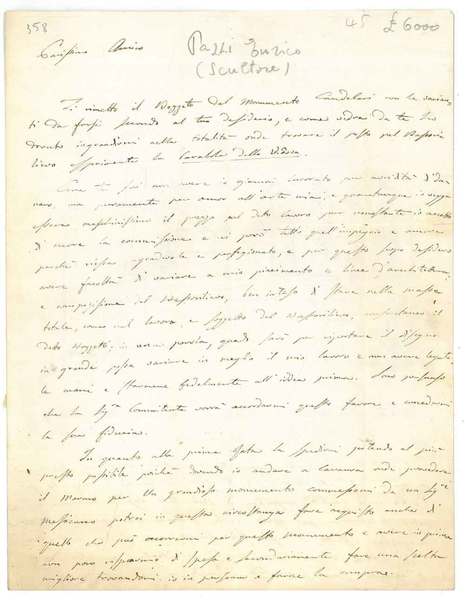 358
45 £ 6000
Pazzi Enrico
(Scultore)
Carissimo Amico
Ti rimetto il Bozzetto del Monumento Candelari con le varian-
ti da farsi secondo il tuo desiderio, e come vedrai da te ho
dovuto ingrandirmi nella totalità onde trovare il posto pel Basso-ri-
lievo esprimente la
Come tu sai non avere io giammai lavorato per avidità d'da-
naro, ma puramente per amore all'arte mia; e quantunque io vegga
essere meschinissimo il prezzo pel dto lavoro pur nonostante io accetto
di avere la commissione e vi porrò tutto quell'impegno e amore
perchè riesca gradevole e pregiato, e per questo scopo desidero
avere facoltà di variare a mio piacimento le linee d'architettura,
e composizione del Bassorilievo, ben inteso di stare nella massa
totale, come nel lavoro, e soggetto del Bassorilievo, contenuto il
dto Bozzetto: in una parola, quando sarò per riportare il disegno
in grande possa variare in meglio il mio lavoro e non avere legate
le mani e starmene fedelmente all'idea prima. Sono persuaso
che la Sigra Committente vorrà accordarmi questo favore e concedermi
la sua fiducia.
In quanto alla prima rata la spedirai potendo al più
presto possibile poichè dovendo io andare a Carrara onde prendere
il Marmo per un grandioso monumento commessomi da un Sigr
Messicano potrei in questa circostanza fare acquisto anche di
quello che può occorrermi per questo monumento e avere in primo
un poco risparmio di spese e secondariamente fare una scelta
migliore trovandomi io in persona a favore la